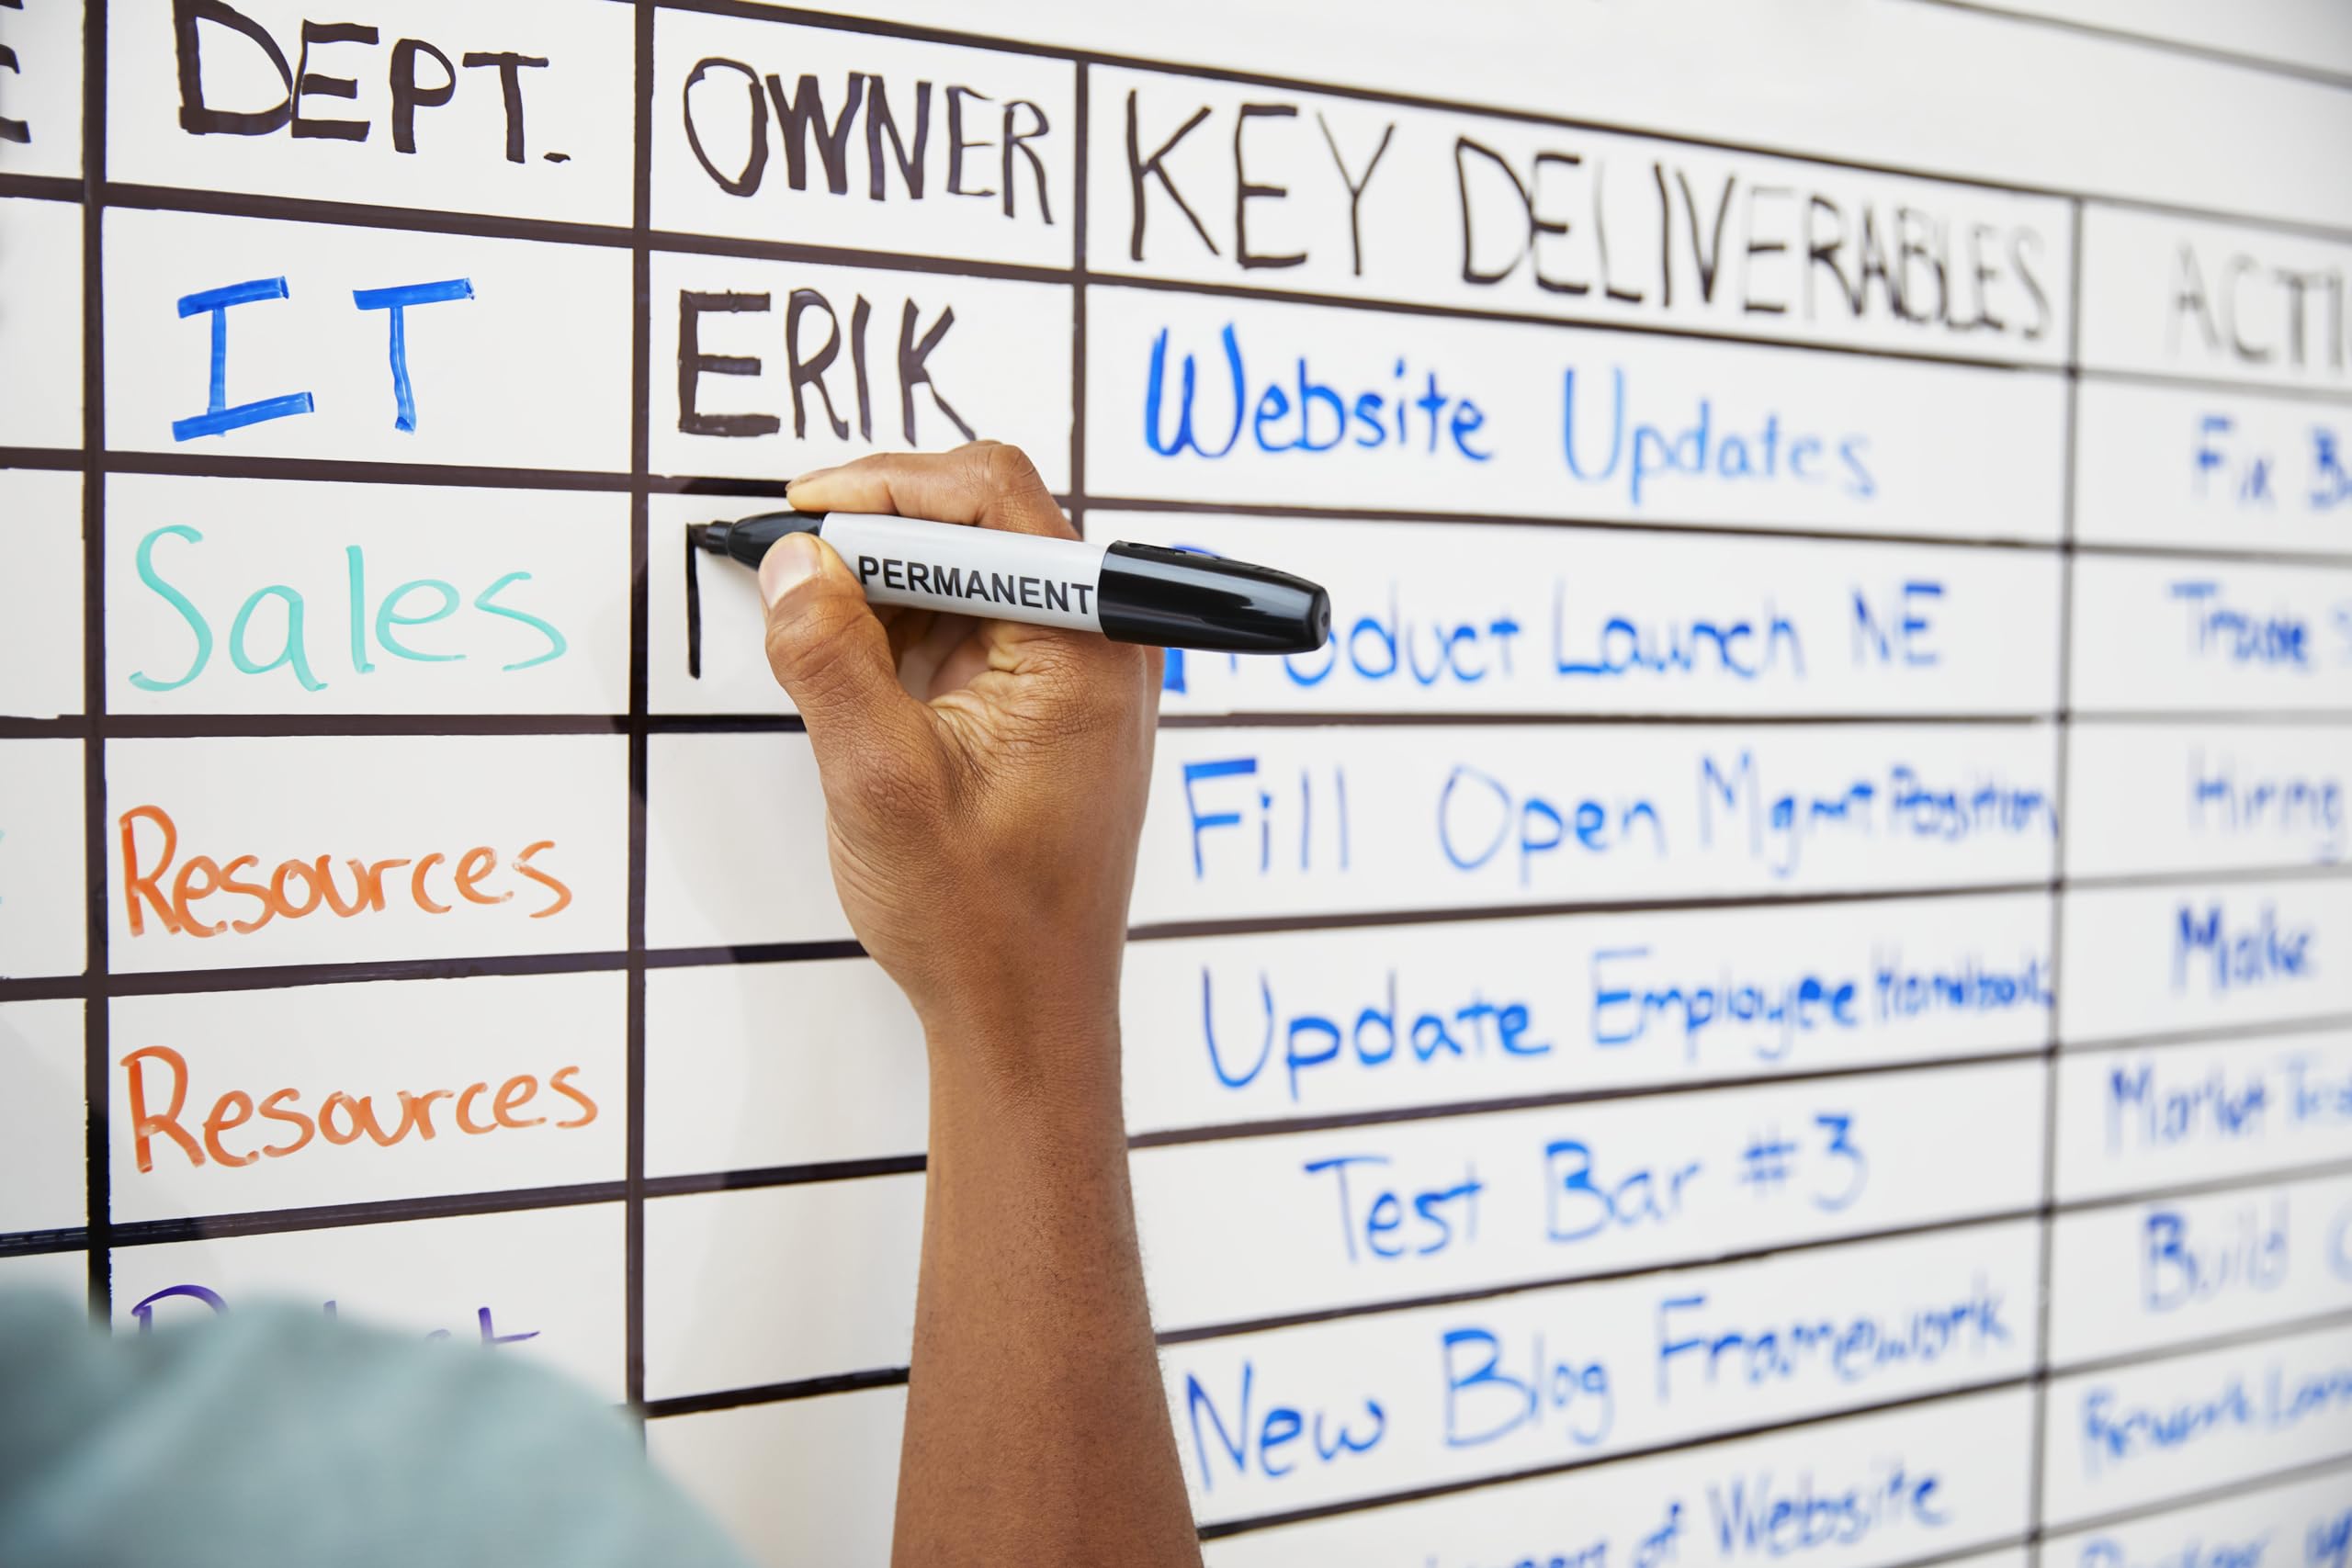 DEPT. OWNER KEY DELIVERABLES ACTI
IT ERIK Website Updates Fix B
Sales Product Launch NE Trade
PERMANENT
Resources Fill Open Mgmt. Position Hiring
Resources Update Employee Handbook Make
Test Bar #3 Market Tes
New Blog Framework Build
of Website